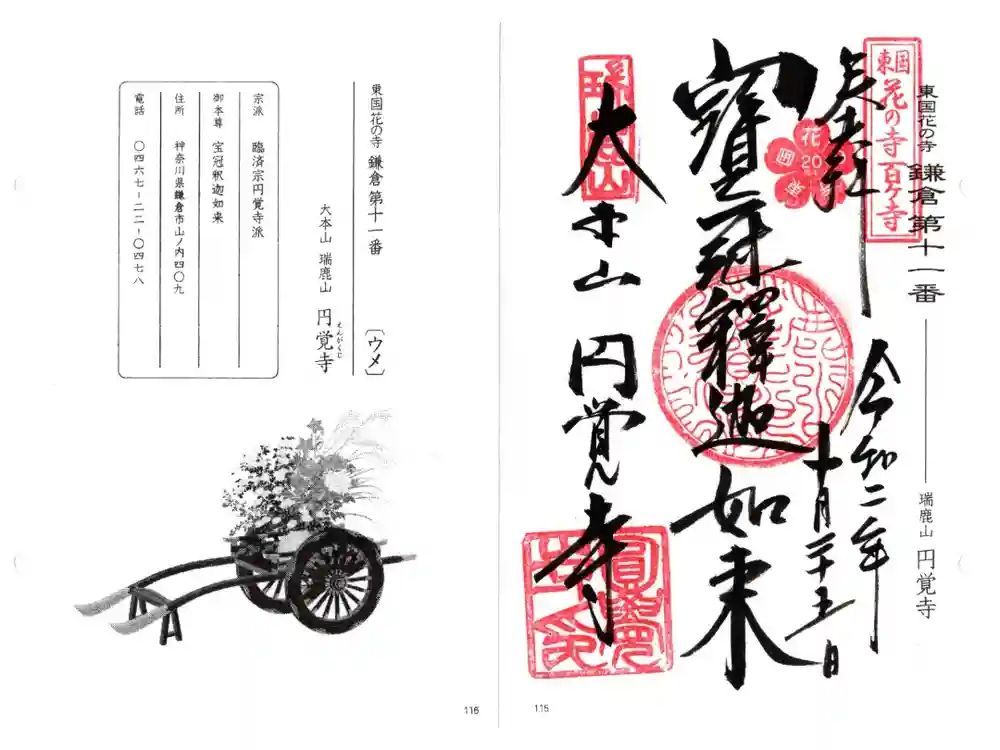 東国花の寺 鎌倉 第十一番
瑞鹿山 円覚寺
東国
花の寺 百ヶ寺
花
20
奉拝
令和二年
十月二十五日
寶冠釋迦如来
大本山 円覚寺
115
東国花の寺 鎌倉 第十一番
〔ウメ〕
大本山 瑞鹿山 円覚寺
えんがくじ
宗派 臨済宗円覚寺派
御本尊 宝冠釈迦如来
住所 神奈川県鎌倉市山ノ内四〇九
電話 〇四六七-二二-〇四七八
116